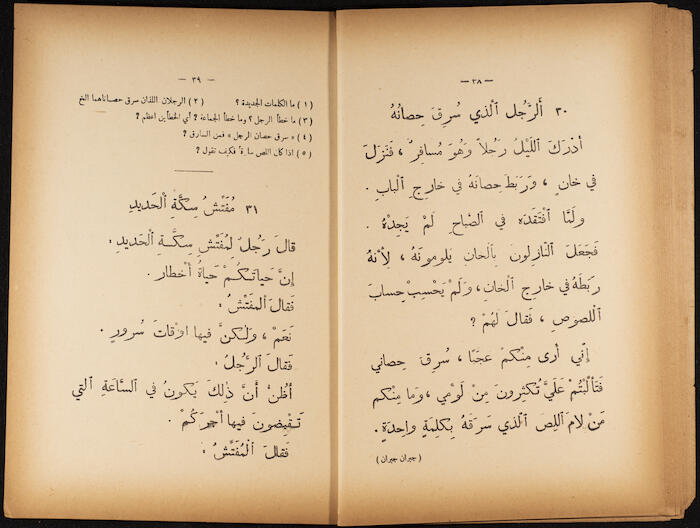 — ٣٨ —
٣٠ أَلرَّجُل الَّذي سُرِقَ حِصانُهُ
أَدْرَكَ اللَّيْلُ رَجُلاً وَهُوَ مُسافِرٌ ، فَنَزَلَ
في خانٍ ، وَرَبَطَ حِصانَهُ في خارِجِ الْبابِ .
وَلَمّا افْتَقَدَهُ في الصَّباحِ لَمْ يَجِدْهُ .
فَجَعَلَ النّازِلونَ بِالْخانِ يَلومونَهُ ، لِأَنَّهُ
رَبَطَهُ في خارِجِ الْخانِ ، وَلَمْ يَحْسِبْ حِسابَ
اللُّصوصِ ، فَقالَ لَهُمْ ؟
إِنّي أَرى مِنْكُمْ عَجَبًا ، سُرِقَ حِصاني
فَتَأَلَّبْتُمْ عَلَيَّ تُكْثِرونَ مِنْ لَوْمي ، وَما مِنْكُم
مَنْ لامَ اللِّصَّ الَّذي سَرَقَهُ بِكَلِمَةٍ واحِدَةٍ .
( جبران جبران )
— ٣٩ —
( ١ ) ما الكلمات الجديدة ؟ ( ٢ ) الرجلان اللذان سرق حصاناهما الخ
( ٣ ) ما خطأ الرجل ؟ وما خطأ الجماعة ؟ أي الخطأين اعظم ؟
( ٤ ) « سرق حصان الرجل » فمن السارق ؟
( ٥ ) اذا كان اللص فكيف تقول ؟
٣١ مُفَتِّشُ سِكَّةِ الْحَديدِ
قالَ رَجُلٌ لِمُفَتِّشِ سِكَّةِ الْحَديدِ :
إِنَّ حَياتَكُمْ حَياةُ أَخْطارٍ .
فَقالَ الْمُفَتِّشُ :
نَعَمْ ، وَلكِنَّ فيها اوْقاتَ سُرورٍ .
فَقالَ الرَّجُلُ :
أَظُنُّ أَنَّ ذلِكَ يَكونُ في السّاعَةِ الَّتي
تَقْبِضونَ فيها أُجْرَكُمْ .
فَقالَ الْمُفَتِّشُ :